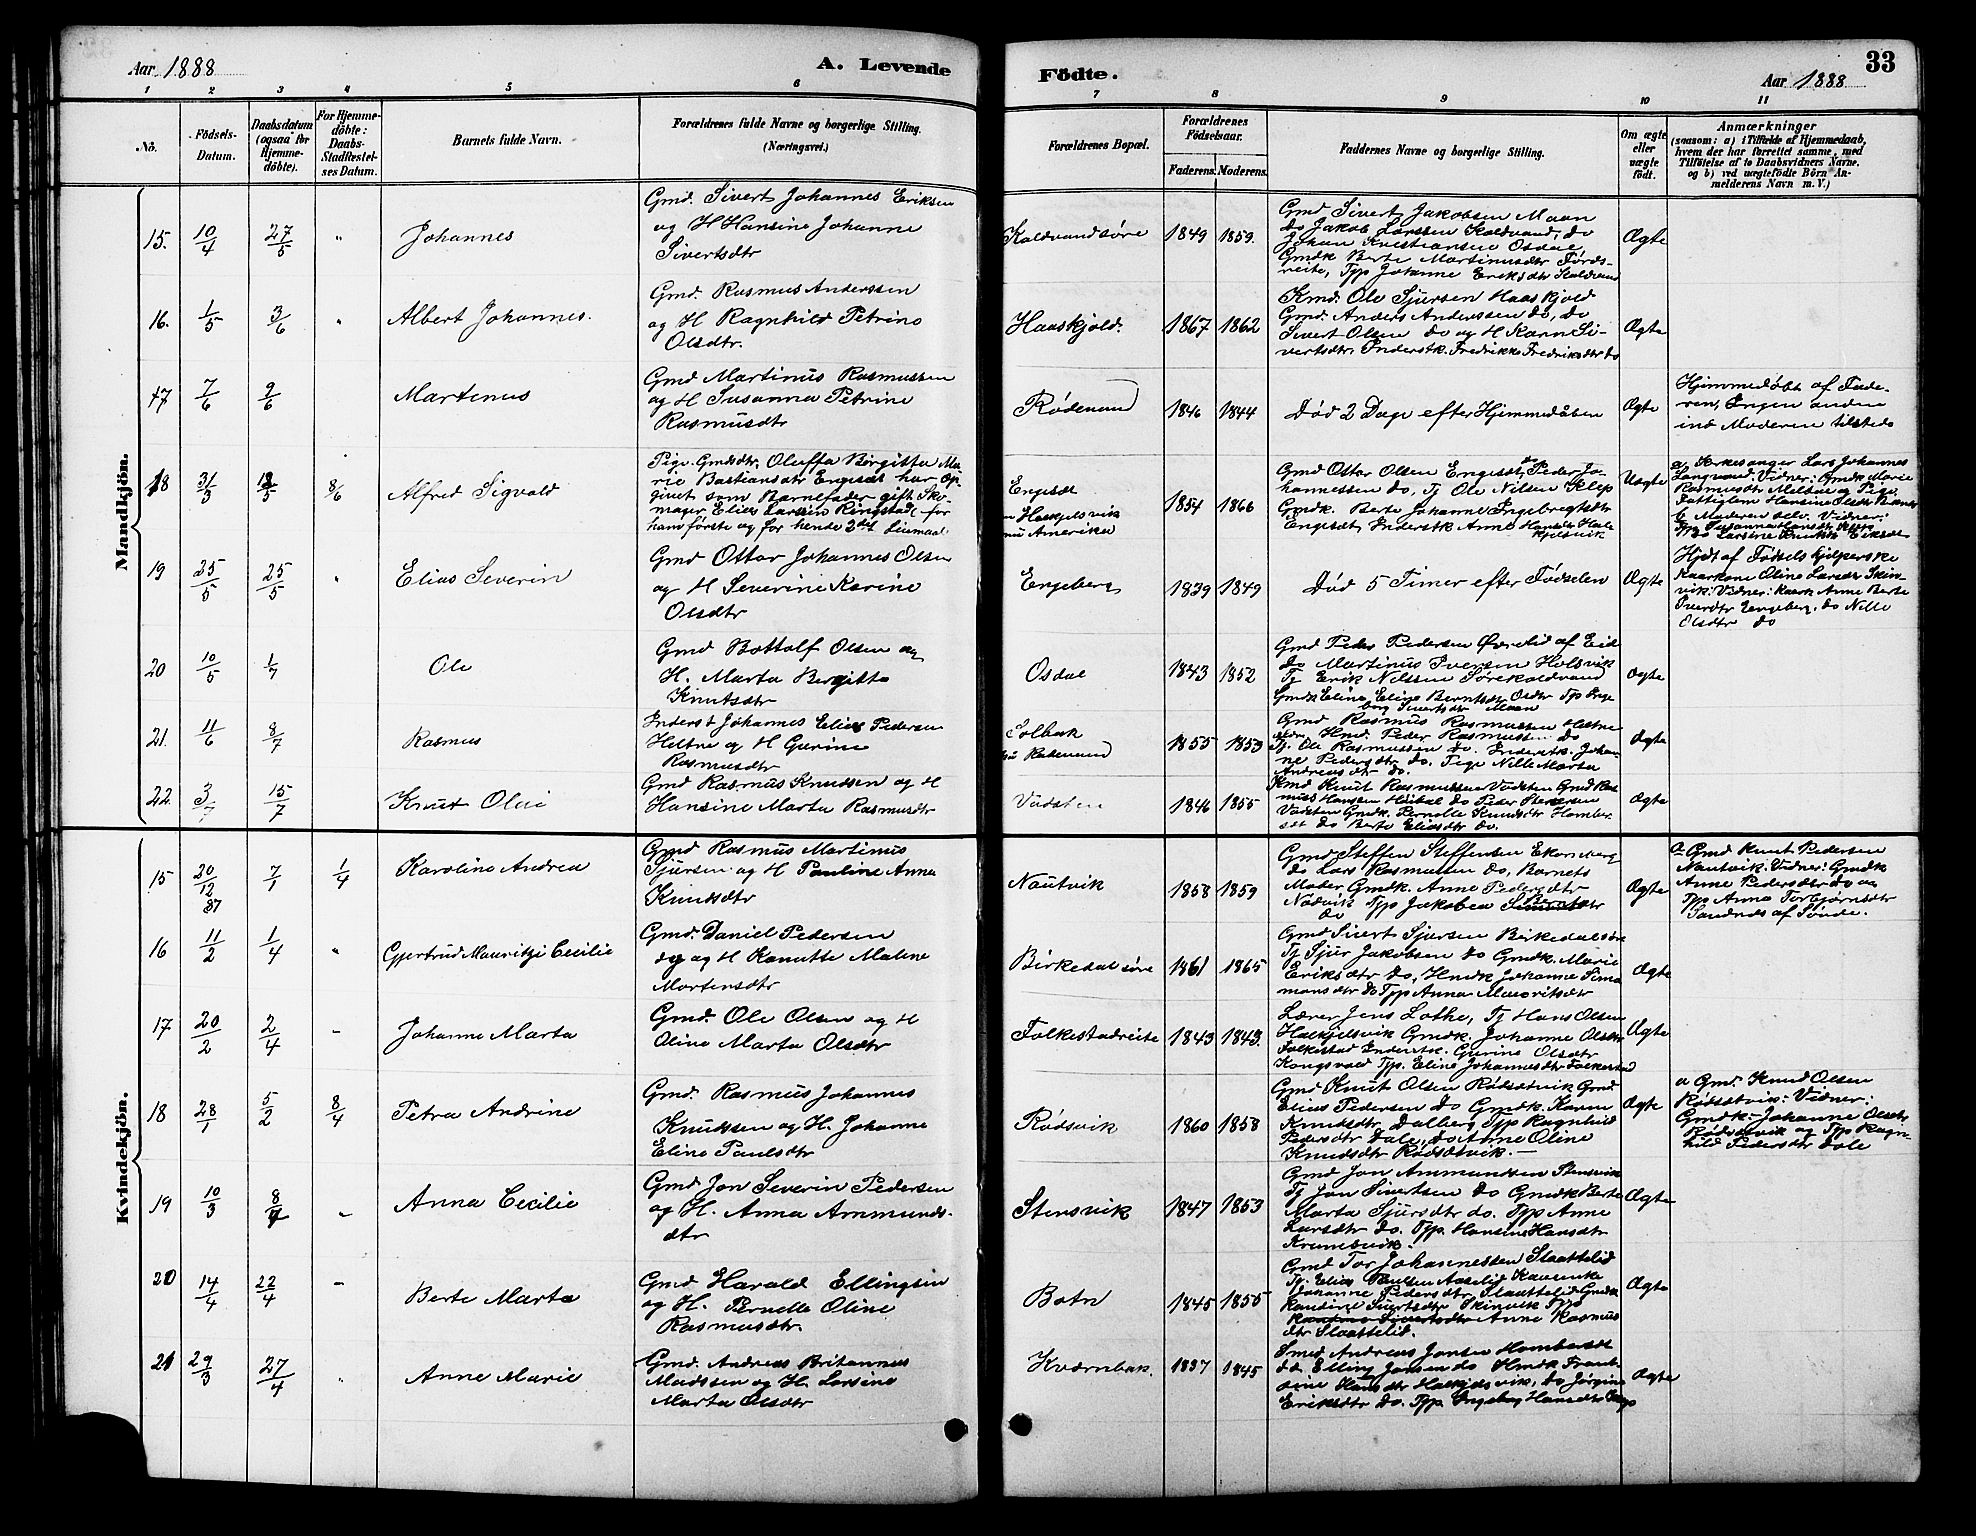 Aar 1888
A. Levende
Födte.
33
Aar 1888
1 2 3 4 5 6 7 8 9 10 11
No.
Födsels-
Datum.
Daabsdatum
(ogsaa for
Hjemme-
döbte).
For Hjemme-
döbte:
Daabs-
Stadfæstel-
ses Datum.
Barnets fulde Navn.
Forældrenes fulde Navne og borgerlige Stilling.
(Næringsvei.)
Forældrenes Bopæl.
Forældrenes
Födselsaar.
Faderens. Moderens.
Faddernes Navne og borgerlige Stilling.
Om ægte
eller
uægte
födt.
Anmærkninger
(saasom: a) i Tilfælde af Hjemmedaab,
hvem der har forrettet samme, med
Tilföielse af to Daabsvidners Navne,
og b) ved uægtefödte Börn An-
melderens Navn m. V.)
Mandkjön.
15. 10/4 27/5 " Johannes
Gmd. Sivert Johannes Eriksen
og H Hansine Johanne
Sivertsdtr
Koldvandsøre 1849 1859.
Gmd Sivert Jakobsen Maan
do Jakob Larssen Koldvand, do
Johan Kristiansen Osdal
Gmdk Berte Martinusdtr Förds-
reite, Tpp Johanne Eriksdtr Koldvand
Ægte
16. 1/5 3/6 " Albert Johannes.
Gmd. Rasmus Anderssen
og H Ragnhild Petrine
Olsdtr.
Haaskjold. 1867 1862
Kmd. Ole Sjursen Haaskjold
Gmd. Anders Anderssen do, do
Sivert Olsen do og H Karen Si-
vertsdtr. Inderstk. Fredrikke Fredriksdtr do
Ægte
17 7/6 9/6 Martinus
Gmd Martinus Rasmussen
og H Susanna Petrine
Rasmusdtr
Rödemund 1846 1844
Död 2 Dage efter Hjemmedåben
Ægte
Hjemmedøbt af Fade-
ren, Ingen anden
end Moderen tilstede
18 31/3 13/5 8/6 Alfred Sigvald
Pige Gmdsdtr. Oluffa Birgitta Ma-
rie Bastiansdtr Engesæt har op-
givet som Barnefader gift Sko-
mager Elias Larssen Ringstad for
ham förste og for hende 2det Leiermaal
Engesæt
Halkjelsvik
nu Amerika
1854 1866
Gmd Ottar Olsen Engesæt, do Peder Jo-
hannessen do, Tj Ole Nilsen Klep
Gmdk. Berte Johanne Ingebregtsdtr
Engesæt, Inderstk Anne Hansdtr Hal-
kjelsvik
Uægte
a. Kirkesanger Lars Johannes
Langvad. Vidner: Gmdk Marie
Rasmusdtr Melbøe og Pige
Hansine Olsdtr
b Moderen selv. Vidner:
19 25/5 25/5 " Elias Severin
Gmd Ottar Johannes Olsen
og H Severine Karine
Olsdtr
Engeberg 1839 1849
Död 5 Timer efter Födselen
Ægte
Hjdt af Födselshjelperske
Kaarkone Oline Larsdtr Skin-
vik: Vidner: Kaark Anne Berte
Iversdtr Engeberg, do Nille
Olsdtr do
20 10/5 1/7 Ole
Gmd Bottolf Olsen og
H. Marta Bergitta
Knutsdtr
Osdal 1843 1852
Gmd Peder Pedersen Øvrelid af Eid
do Martinus Iversen Holsvik
Tj Erik Nilssen Sørekoldvand
Gmdk Eline Berntsdtr Osdal Tpp Inge-
borg Sivertsdtr Maan
Ægte
21. 11/6 8/7 Rasmus
Inderst Johannes Elias Pedersen
Heltne og H Gurine
Rasmusdtr
Solbak
nu Rødemund
1855 1853
Gmd Rasmus Rasmussen Hetne
Hmd. Peder Rasmussen do
Tj. Ole Rasmussen do. Inderstk. Johan-
ne Pedersdtr do. Pige Nille Marta
Andreasdtr do.
Ægte
22. 3/7 15/7 Knut Olai
Gmd Rasmus Knudsen og H
Hansine Marta Rasmusdtr
Vadsten 1846 1855
Kmd Knut Rasmussen Vadsten Gmd Ras-
mus Hanssen Heibal do Peder
Vadsten Gmdk. Pernelle Knudsdtr Homber-
set do Berte Eliasdtr do.
Ægte
Kvindekjön.
15 20/12 87 7/1 1/4 Karoline Andrea
Gmd Rasmus Martinus
Sjursen og H Pauline Anna
Knudsdtr
Nautvik 1858 1859
Gmd Steffen Steffensen Ekornberg
do Lars Rasmussen do, Barnets
Moder, Gmdk. Anne Pedersdtr
Nødvik Tpp Jakobea
do
Ægte
a. Gmd Knut Pedersen
Nautvik. Vidner: Gmdk
Anne Pedersdtr do og
Tpp Anna Torbjørnsdtr
Sandnes af Sönde.
16 11/2 1/4 " Gjertrud Mauritzi Cecilie
Gmd. Daniel Pedersen
og H Kanutte Malene
Mortensdtr
Birkedalsøre 1861 1865
Gmd Sivert Sjursen Birkedalsøre
Tj Sjur Jakobsen do Gmdk. Marie
Eriksdtr do, Hmdk Johanne Sima-
monsdtr do Tpp Anna Mauritsdtr
Ægte
17 20/2 2/4 - Johanne Marta
Gmd. Ole Olsen og H
Oline Marta Olsdtr
Folkestadreite 1843 1843.
Lærer Jens Lothe, Tj Hans Olsen
Halkjelsvik Gmdk. Johanne Olsdtr
Folkestad Inderstk. Gurine Olsdtr
Kongsvold Tpp. Eline Johannesdtr Folkestad
Ægte
18 28/1 5/2 8/4 Petra Andrine
Gmd. Rasmus Johannes
Knutssen og H. Johanne
Eline Paulsdtr
Rödsvik 1860 1858
Gmd Knut Olsen Rödsætvik Gmd
Elias Pedersen do Gmdk. Karen
Knudsdtr Dalberg Tpp Ragnhild
Pedersdtr Dale, do Anne Oline
Knudsdtr Rödsætvik. —
Ægte
a Gmd. Knud Olsen
Rödsætvik: Vidner:
Gmdk. Johanne Olsdtr
Rödsætvik og Tpp Ragn-
hild Pedersdtr Dale
19 10/3 8/4 " Anna Cecilie
Gmd Jon Severin Pedersen
og H. Anna Ammunds-
dtr
Stensvik 1847 1853
Gmd Jon Ammundsen Stensvik
Tj Jon Sivertsen do Gmdk Berte
Marta Sjursdtr do. Tpp Anne
Larsdtr do. Tpp. Hansine Hansdtr
Krunesvik.
Ægte
20 14/4 22/4 - Berte Marta
Gmd Harald Ellingsen
og H. Pernelle Oline
Rasmusdtr.
Botn 1845 1855
Gmd Tor Johannessen Slaattelid
Tj. Elias Paulsen Aaselid Kaarenke
Johanne Pedersdtr Slaattelid Gmdk
Karoline Sivertsdtr Skinvik Tpp
Anne Rasmus
dtr Slaattelid.
Ægte
21 29/3 27/4 " Anne Marie
Gmd. Andreas Britannus
Madssen og H. Larsine
Marta Olsdtr
Kværnbak. 1837 1845
Smed Andreas Jansen Homberset
do. Elling Jansen do Hmdk Frant-
sine Hansdtr Halkjelsvik, do Jørgine
Eriksdtr do. Tpp. Ingeborg Hansdtr
Ægte